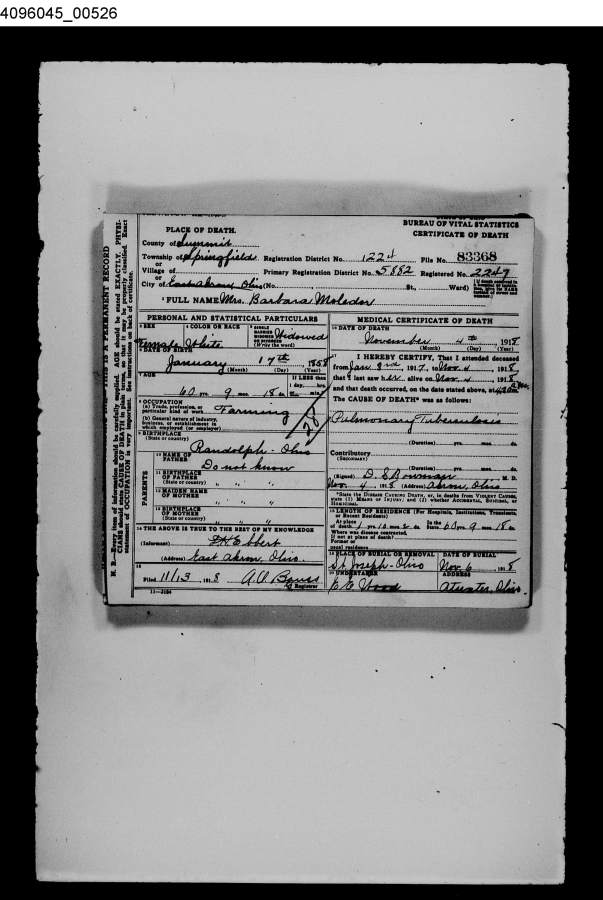 4096045_00526
BUREAU OF VITAL STATISTICS
CERTIFICATE OF DEATH
PLACE OF DEATH.
County of Summit
Township of Springfield Registration District No. 1224 File No. 83368
or
Village of Primary Registration District No. 5882 Registered No. 2249
or
City of East Akron, Ohio (No. St., Ward)
FULL NAME Mrs. Barbara Moledor
PERSONAL AND STATISTICAL PARTICULARS
3 SEX 4 COLOR OR RACE 5 SINGLE MARRIED WIDOWED OR DIVORCED (Write the word) Widowed
Female White
6 DATE OF BIRTH
January 17th, 1858
(Month) (Day) (Year)
7 AGE If LESS than 1 day, hrs.
60 yrs. 9 mos. 18 ds. min.
8 OCCUPATION
(a) Trade, profession, or particular kind of work Farming
(b) General nature of industry, business, or establishment in which employed (or employer)
9 BIRTHPLACE
(State or country) Randolph-Ohio
PARENTS
10 NAME OF FATHER Do not know
11 BIRTHPLACE OF FATHER
(State or country) " " "
12 MAIDEN NAME OF MOTHER " " "
13 BIRTHPLACE OF MOTHER
(State or country) " " "
14 THE ABOVE IS TRUE TO THE BEST OF MY KNOWLEDGE
(Informant)
(Address) East Akron, Ohio.
15
Filed 11/13, 1918 Registrar
11-3184
MEDICAL CERTIFICATE OF DEATH
16 DATE OF DEATH
November 4th, 1918
(Month) (Day) (Year)
I HEREBY CERTIFY, That I attended deceased
from Jan 3rd, 1917, to Nov. 4, 1918,
that I last saw her alive on Nov. 4, 1918,
and that death occurred, on the date stated above, at
The CAUSE OF DEATH* was as follows:
Pulmonary Tuberculosis
(Duration) yrs. mos. ds.
Contributory
(SECONDARY)
(Duration) yrs. mos. ds.
(Signed) D. S. Bowman M. D.
Nov. 4, 1918 (Address) Akron, Ohio
*State the DISEASE CAUSING DEATH, or, in deaths from VIOLENT CAUSES, state (1) MEANS OF INJURY; and (2) whether ACCIDENTAL, SUICIDAL, or HOMICIDAL.
18 LENGTH OF RESIDENCE (For Hospitals, Institutions, Transients, or Recent Residents)
At place of death 1 yrs. 10 mos. 2 ds. In the State 60 yrs. 9 mos. 18 ds.
Where was disease contracted,
if not at place of death?
Former or
usual residence
19 PLACE OF BURIAL OR REMOVAL DATE OF BURIAL
St. Joseph-Ohio Nov. 6, 1918
20 UNDERTAKER ADDRESS
Wood Atwater, Ohio.
THIS IS A PERMANENT RECORD
N. B.—Every item of information should be carefully supplied. AGE should be stated EXACTLY. PHYSICIANS should state CAUSE OF DEATH in plain terms, so that it may be properly classified. Exact statement of OCCUPATION is very important. See instructions on back of certificate.